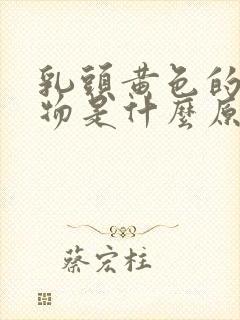 乳頭黃色的
物是什麼原
蔡宏柱